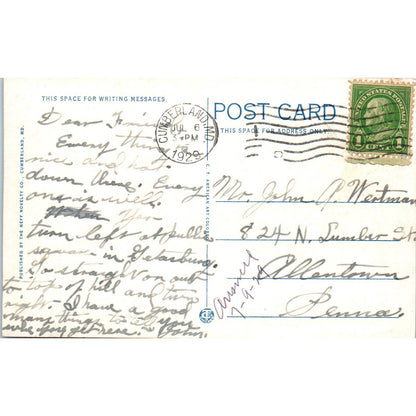 THIS SPACE FOR WRITING MESSAGES.
POST CARD
THIS SPACE FOR ADDRESS ONLY
CUMBERLAND, MD.
JUL 6
PM
1929
UNITED STATES POSTAGE
1 CENT 1
PUBLISHED BY THE NEFF NOVELTY CO., CUMBERLAND, MD.
Dear Friend
Every thing
nice and hot
down there. Every
one is well.
You
turn left at public
square in
Go straight on out
to top of hill and turn
right. I have a good
many things to tell you
when you get here. John.
Mr. John A. Wertman
824 N. Lumber St.
Allentown
Penna.
Answered
7-9-29